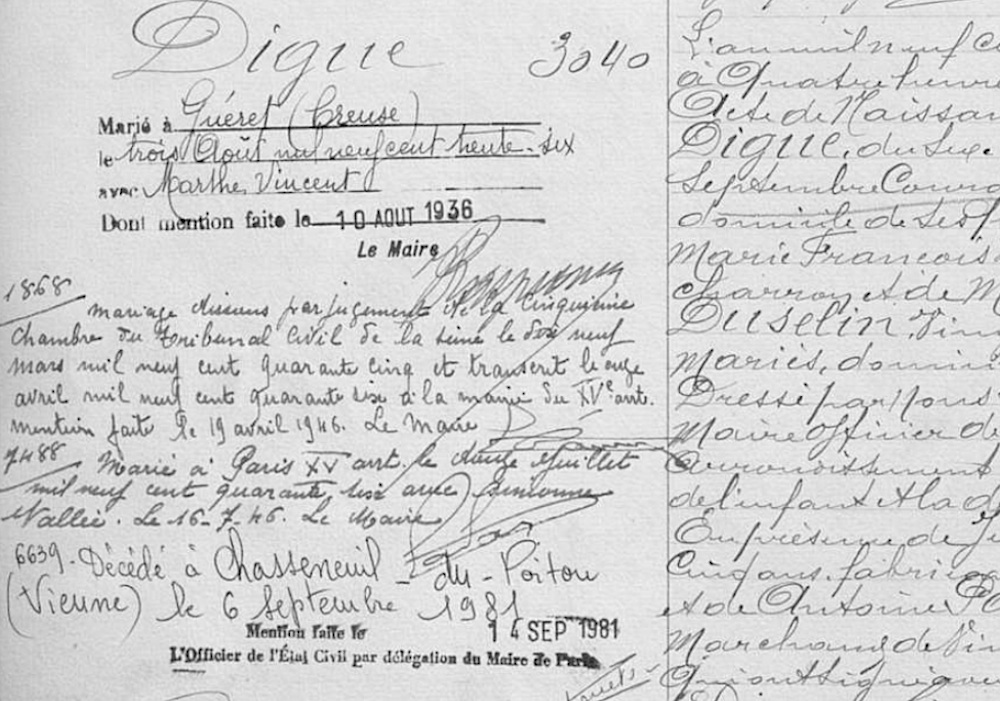 Digue 3040
Marié à Guéret (Creuse)
le trois Août mil neuf cent trente-six
avec Marthe Vincent
Dont mention faite le 10 AOUT 1936
Le Maire
1868
mariage dissous par jugement de la cinquième
chambre du tribunal Civil de la Seine le dix neuf
mars mil neuf cent quarante cinq et transcrit le onze
avril mil neuf cent quarante six à la mairie du XVe arrt.
mention faite le 19 avril 1946. Le Maire
7488
Marié à Paris XV arrt. le douze Juillet
mil neuf cent quarante six avec Simonne
Vallée. Le 16-7-46. Le Maire
6639. Décédé à Chasseneuil-du-Poitou
(Vienne) le 6 Septembre 1981
Mention faite le 14 SEP 1981
L'Officier de l'État Civil par délégation du Maire de Paris
L'an mil neuf c
à Quatre heure
Acte de Naissan
Digue, du sexe
Septembre Coura
domicile de ses p
Marie François
charron et de M
Duselin, Vin
mariés, domici
Dressé par Nous
Maire officier de
arrondissement
de l'enfant et la d
En présence de Ju
Cinq ans, fabric
et de Antoine P
Marchand de Vin
Qui ont signé avec